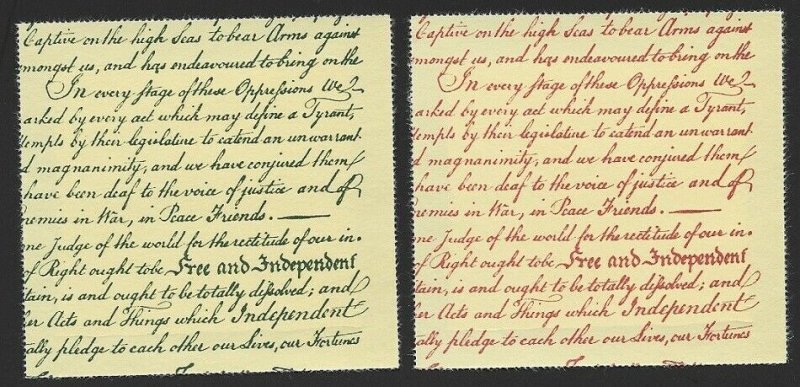 Captive on the high Seas to bear Arms against
mongst us, and has endeavoured to bring on the
In every stage of these Oppreſsions We
arked by every act which may define a Tyrant,
tempts by their legislature to extend an unwarrant
d magnanimity, and we have conjured them
have been deaf to the voice of justice and of
nemies in War, in Peace Friends. —
me Judge of the world for the rectitude of our in.
of Right ought to be Free and Independent
tain, is and ought to be totally diſsolved; and
her Acts and Things which Independent
ally pledge to each other our Lives, our Fortunes
Captive on the high Seas to bear Arms against
mongst us, and has endeavoured to bring on the
In every stage of these Oppreſsions We
arked by every act which may define a Tyrant,
tempts by their legislature to extend an unwarrant
d magnanimity, and we have conjured them
have been deaf to the voice of justice and of
nemies in War, in Peace Friends. —
me Judge of the world for the rectitude of our in.
of Right ought to be Free and Independent
tain, is and ought to be totally diſsolved; and
her Acts and Things which Independent
ally pledge to each other our Lives, our Fortunes